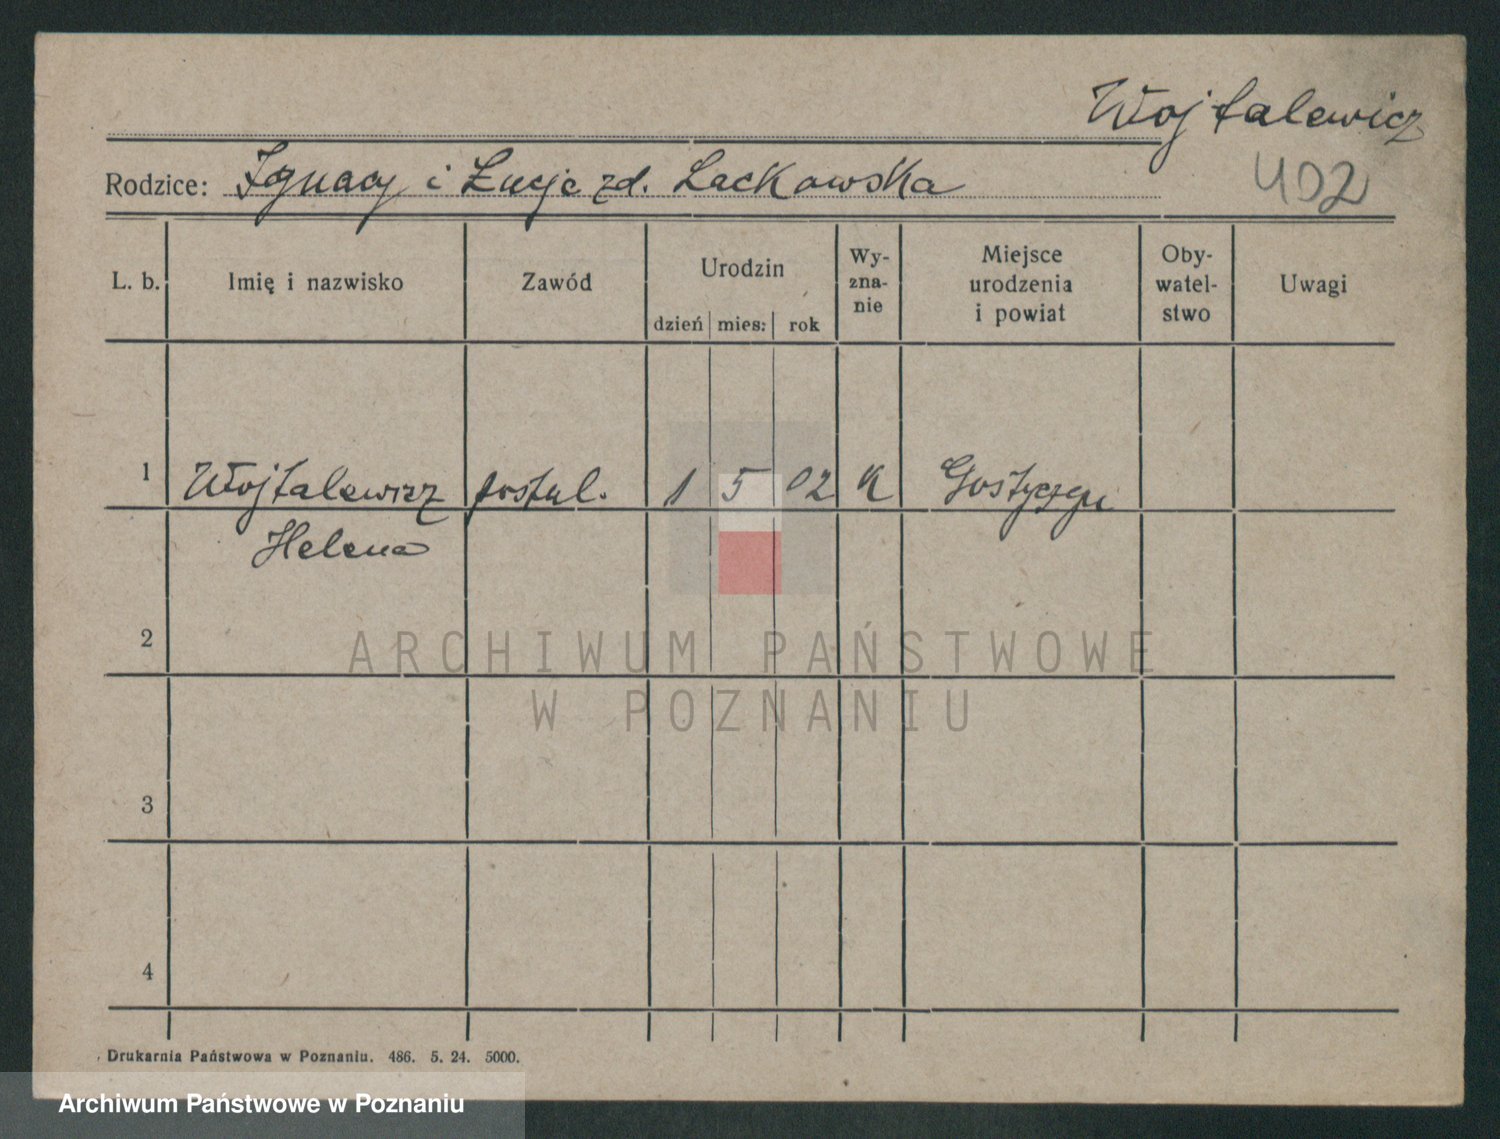 Wojtalewicz
Rodzice: Ignacy i Łucja zd. Lackowska
402
L. b. Imię i nazwisko Zawód Urodzin dzień mies: rok Wy-zna-nie Miejsce urodzenia i powiat Oby-watel-stwo Uwagi
1 Wojtalewicz postul. 1 5 02 k Gostyczyn
Helena
2
ARCHIWUM PAŃSTWOWE
W POZNANIU
3
4
Drukarnia Państwowa w Poznaniu. 486. 5. 24. 5000.
Archiwum Państwowe w Poznaniu